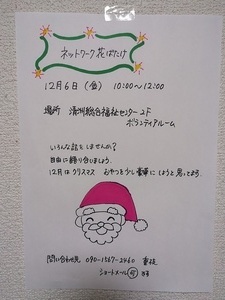 ネットワーク花ばたけ
12月6日（金） 10:00〜12:00
場所 清洲総合福祉センター2F
ボランティアルーム
いろんな話をしませんか？
自由に語り合いましょう。
12月はクリスマス おやつを少し豪華にしようと思ってます。
問い合わせ先 090-1567-2460
ショートメール可